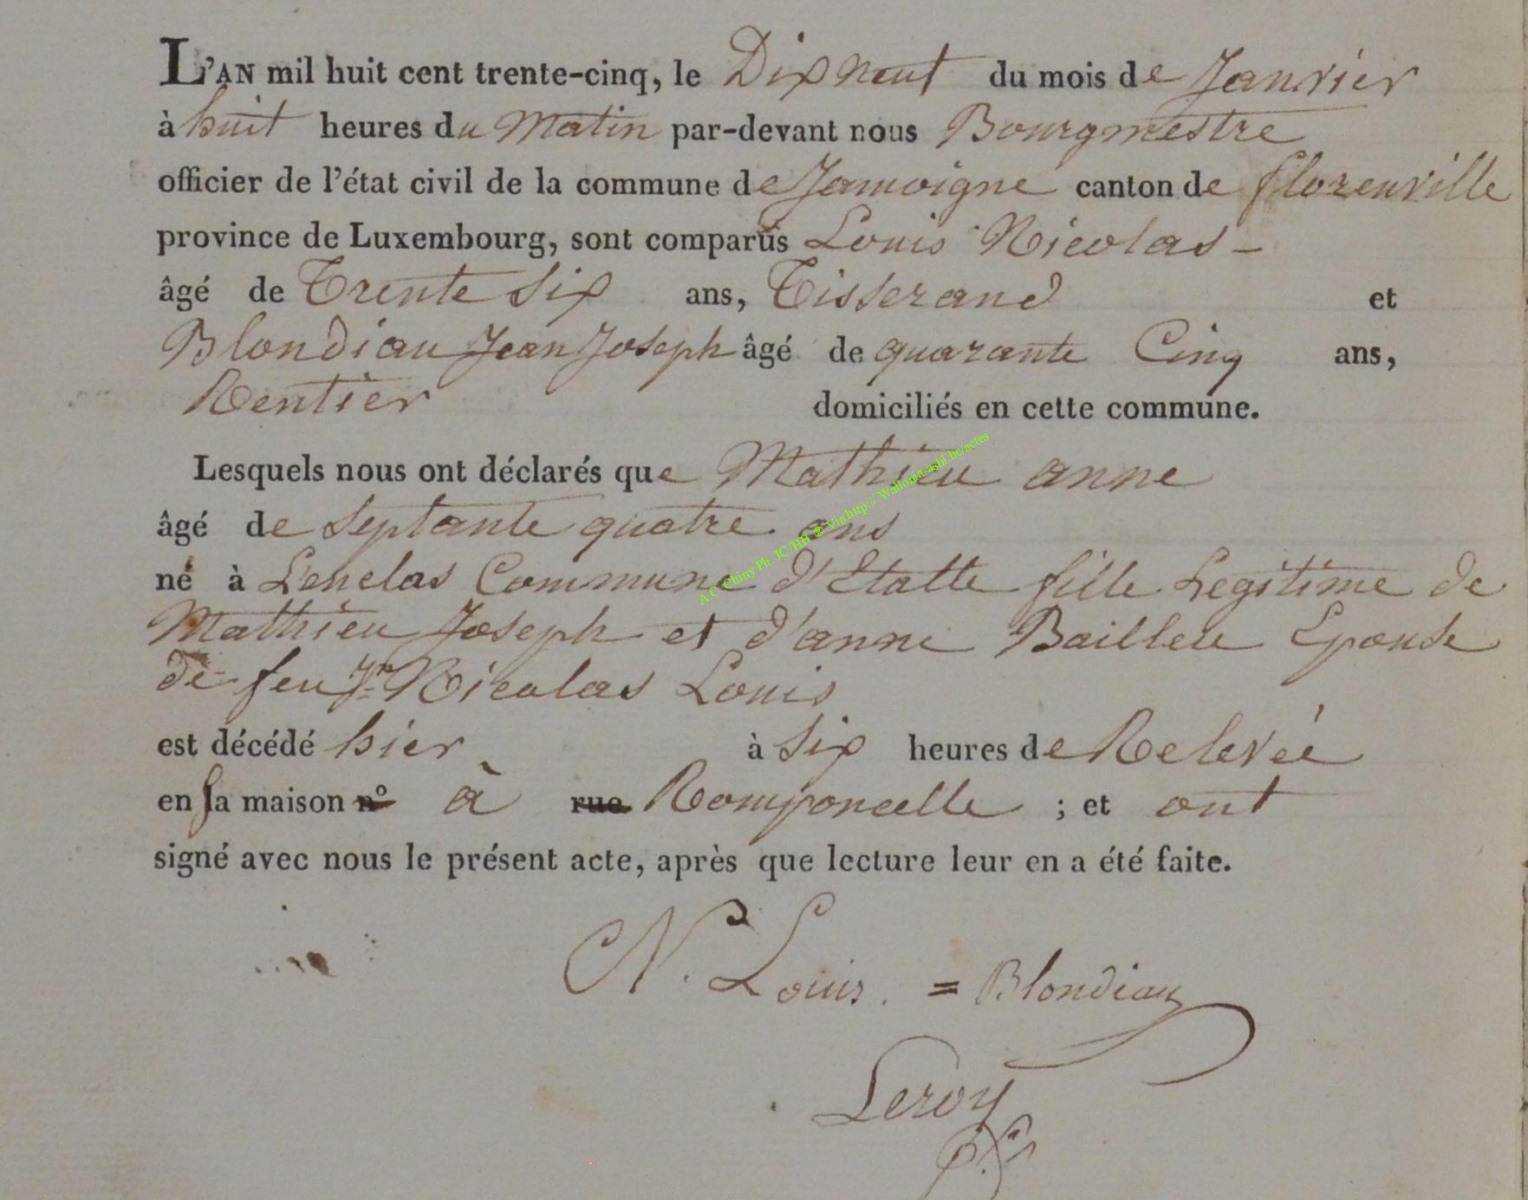 L'AN mil huit cent trente-cinq, le Dix neuf du mois de Janvier
à huit heures du Matin par-devant nous Bourgmestre
officier de l'état civil de la commune de Jamoigne canton de florenville
province de Luxembourg, sont comparus Louis Nicolas -
âgé de Trente Six ans, Tisserand et
Blondiau Jean Joseph âgé de quarante Cinq ans,
Rentier domiciliés en cette commune.
Lesquels nous ont déclarés que Mathieu anne
âgé de Septante quatre ans
né à L'enclas Commune d'Etalle fille Legitime de
Mathieu Joseph et d'anne Bailleu Epouse
de feu Jn Nicolas Louis
est décédé hier à Six heures de Relevée
en sa maison n° à rue Romponcelle ; et ont
signé avec nous le présent acte, après que lecture leur en a été faite.
N. Louis. = Blondiau
Leroy